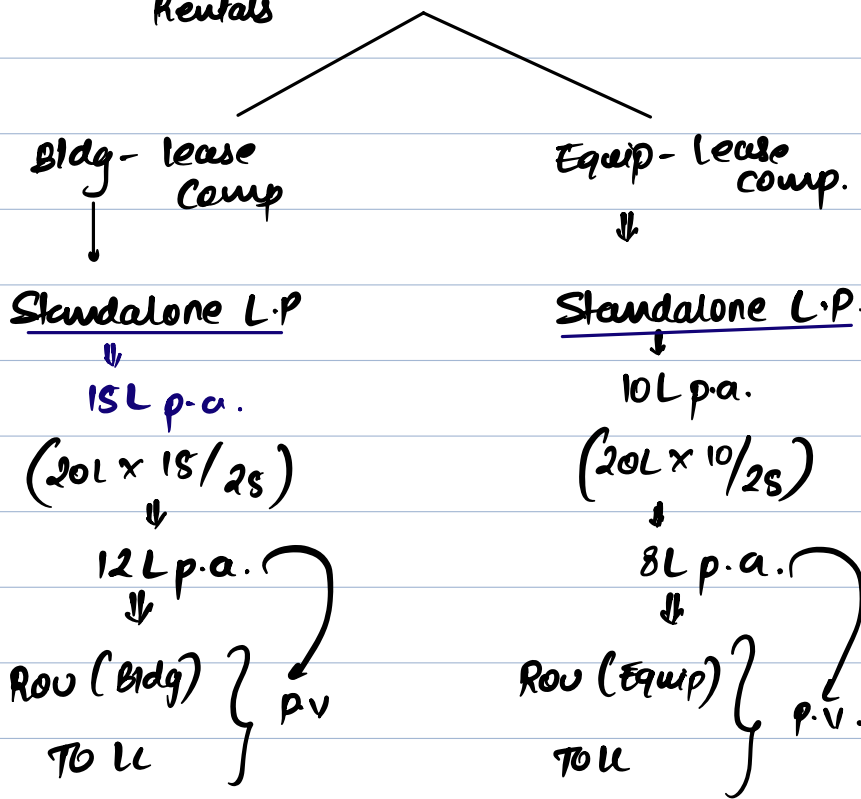 Rentals
Bldg - lease
Comp
Standalone L.P
15L p.a.
(20L x 15/25)
12L p.a.
ROU (Bldg)
P.V
TO LL
Equip - Lease
comp.
Standalone L.P.
10L p.a.
(20L x 10/25)
8L p.a.
ROU (Equip)
P.V.
TO LL